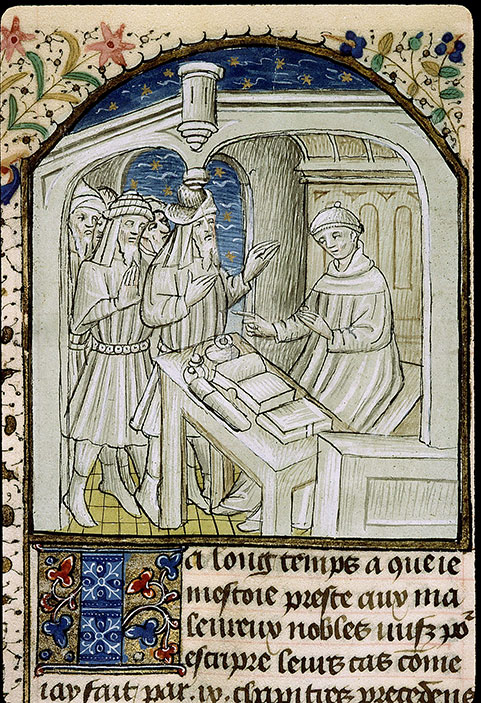 Ia long temps a que ie
mestoie preste aux ma
leureux nobles iuifz poʳ
escripre leurs cas cōme
iay fait par .ix. chapitres precedens